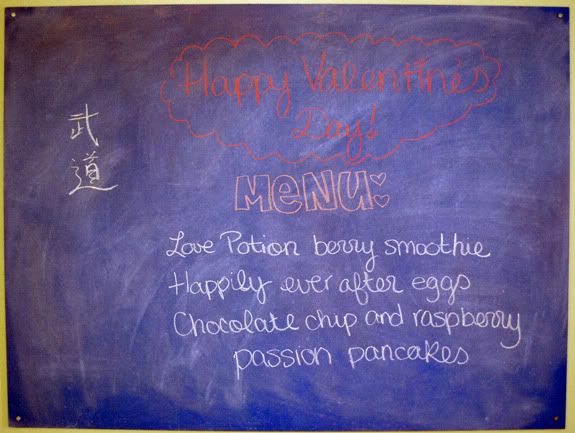 武
道
Happy Valentine's
Day!
MeNU:
Love Potion berry smoothie
Happily ever after eggs
Chocolate chip and raspberry
passion pancakes